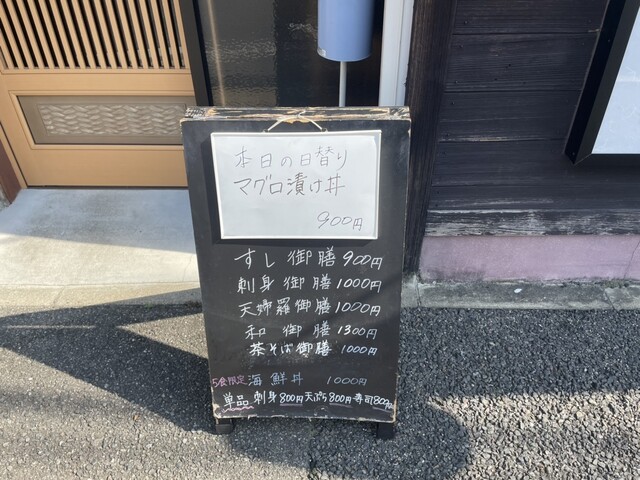 本日の日替り
マグロ漬け丼
900円
すし御膳 900円
刺身御膳 1000円
天婦羅御膳 1000円
和御膳 1300円
茶そば御膳 1000円
5食限定 海鮮丼 1000円
単品 刺身800円 天ぷら800円 寿司800円